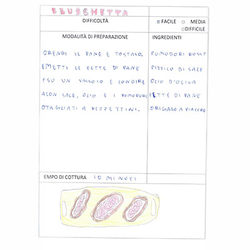 BRUSCHETTA
DIFFICOLTÀ
□ FACILE □ MEDIA
□ DIFFICILE
MODALITÀ DI PREPARAZIONE
INGREDIENTI
PRENDI IL PANE E TOSTALO,
EMETTI LE FETTE DI PANE
SU UN VASSOIO E CONDIRE
CON SALE, OLIO E I POMODORI
TAGLIATI A PEZZETTINI.
POMODORI ROSSI
PIZZICO DI SALE
OLIO D'OLIVA
FETTE DI PANE
ORIGANO A PIACERE
EMPO DI COTTURA
10 MINUTI